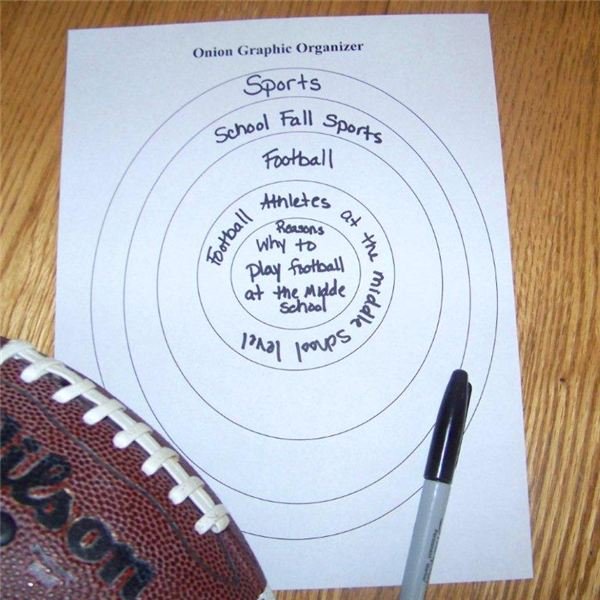 Onion Graphic Organizer
Sports
School Fall Sports
Football
Football Athletes at the middle school level
Reasons
Why to
play football
at the Midde
school
Wilson